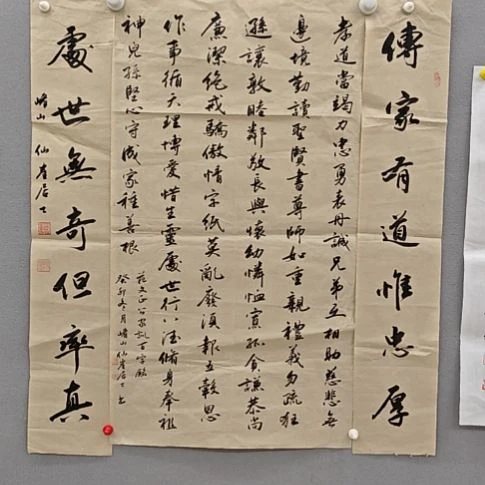 傳家有道惟忠厚
孝道當竭力忠勇表丹誠兄弟互相助慈悲無
邊境勤讀聖賢書尊師如重親禮義勿疏狂
遜讓敦睦鄰敬長與懷幼憐恤寡孤貧謙恭尚
廉潔絕戒驕傲情字紙莫亂廢須報五穀恩
作事循天理博愛惜生靈處世行八德脩身奉祖
神兒孫堅心守成家種善根
范文正公家訓百字銘
癸卯冬月山仙崖居士書
處世無奇但率真
山仙崖居士